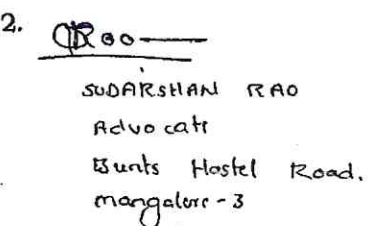 2.
SUDARSHAN RAO
Advocate
Bunts Hostel Road.
mangalore - 3